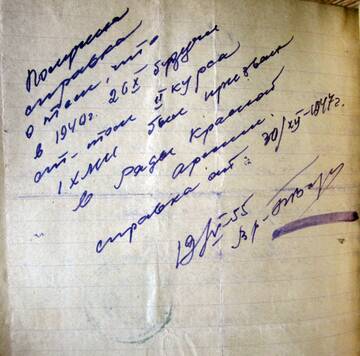 Получила
справка
о том, что
в 1940г. 26 X будучи
ст-том II курса
1 ХМИ был призван
в ряды Красной
армии.
справка от 30/XII-1947г.
19/V-55
Вр-